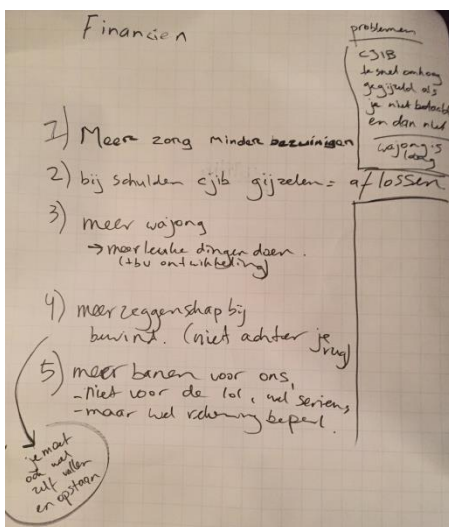 Financien
problemen
CJIB
te snel omhoog
gegijzeld als
je niet betaald
en dan niet
wajong is
laag
1) Meer zorg minder bezuinigen
2) bij schulden cjib gijzelen = aflossen
3) meer wajong
→ meer leuke dingen doen.
(tbv ontwikkeling)
4) meer zeggenschap bij
buwind. (niet achter je
rug)
5) meer banen voor ons,
- niet voor de lol, wel serieus,
- maar wel rekening beperk.
je moet
ook wel
zelf willen
en opstaan